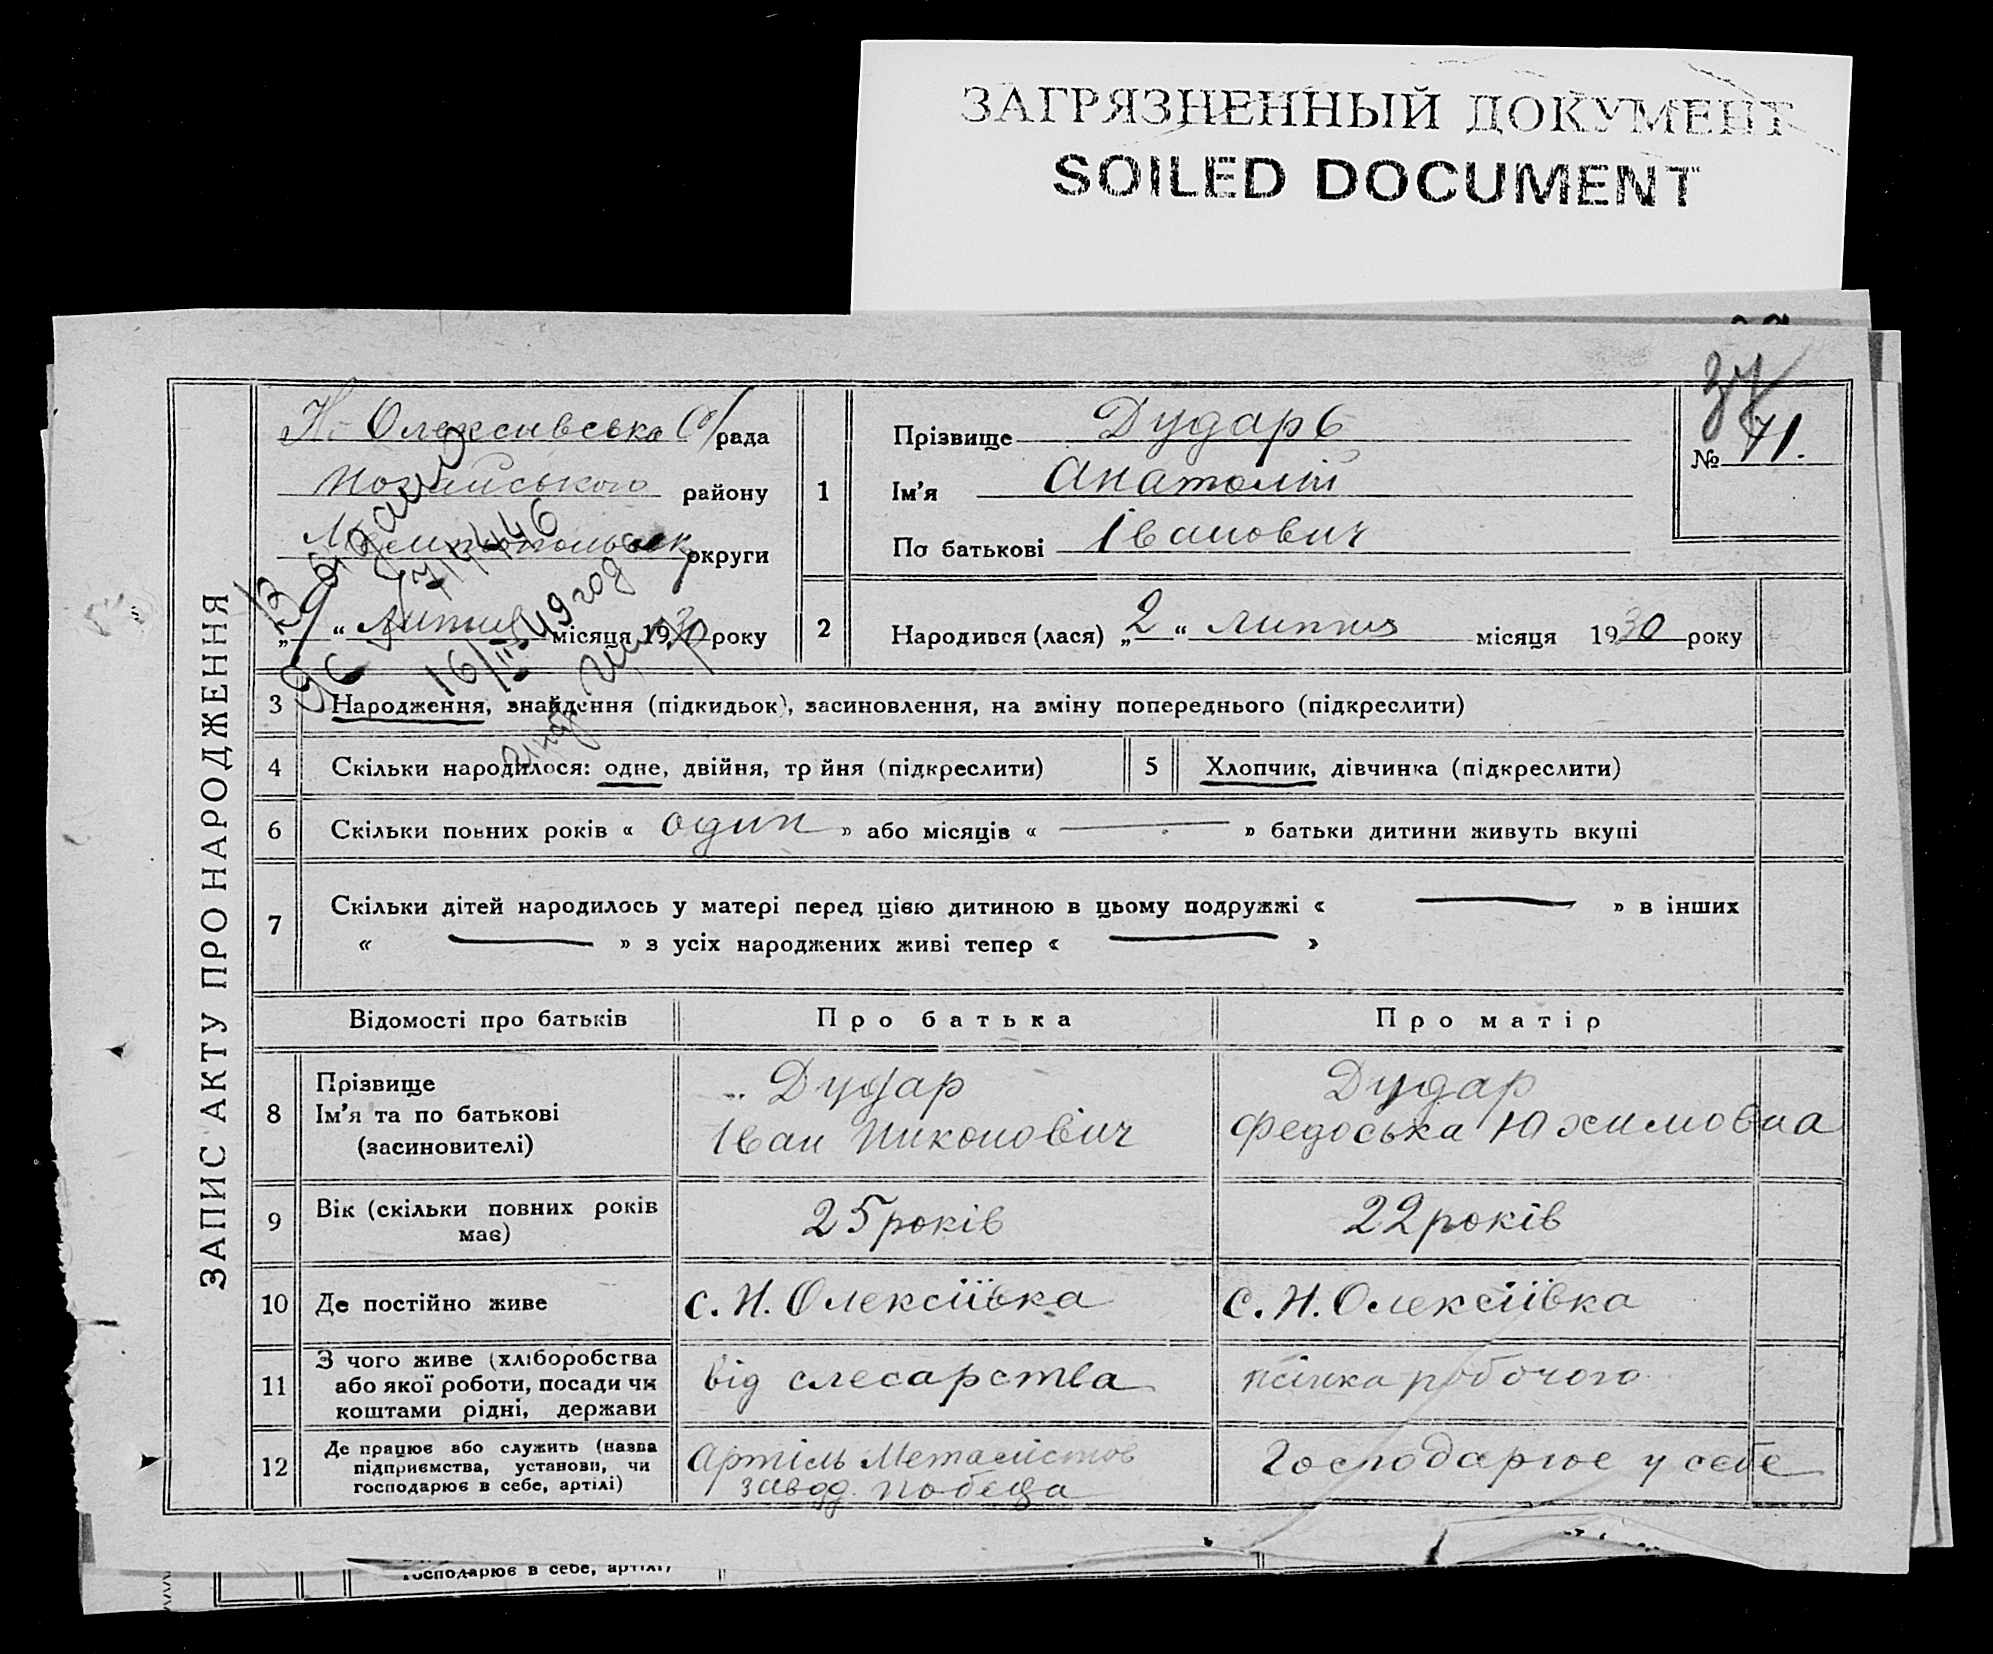 ЗАГРЯЗНЕННЫЙ ДОКУМЕНТ
SOILED DOCUMENT
ЗАПИС АКТУ ПРО НАРОДЖЕННЯ
Н. Олексиевська С/рада
району
округи
„ “ липня місяця 1930 року
16/III 49 год
1 Прізвище Дударь
Ім'я Анатолій
По батькові Іванович
№ 71.
2 Народився (лася) „2“ липня місяця 1930 року
3 Народження, знайдення (підкидьок), засиновлення, на зміну попереднього (підкреслити)
4 Скільки народилося: одне, двійня, тр йня (підкреслити)
5 Хлопчик, дівчинка (підкреслити)
6 Скільки повних років « один » або місяців « — » батьки дитини живуть вкупі
7 Скільки дітей народилось у матері перед цією дитиною в цьому подружжі « — » в інших
« — » з усіх народжених живі тепер « — »
Відомості про батьків
Про батька
Про матір
8 Прізвище
Ім'я та по батькові
(засиновителі)
Дудар
Іван Никонович
Дудар
Федоська Юхимовна
9 Вік (скільки повних років
має)
25 років
22 років
10 Де постійно живе
с. Н. Олексіївка
с. Н. Олексіївка
11 З чого живе (хліборобства
або якої роботи, посади чи
коштами рідні, держави
від слесарства
жінка робочого
12 Де працює або служить (назва
підприємства, установи, чи
господарює в себе, артілі)
Артіль Металістов
завод. победа
Господарює у себе
господарює в себе, артілі)